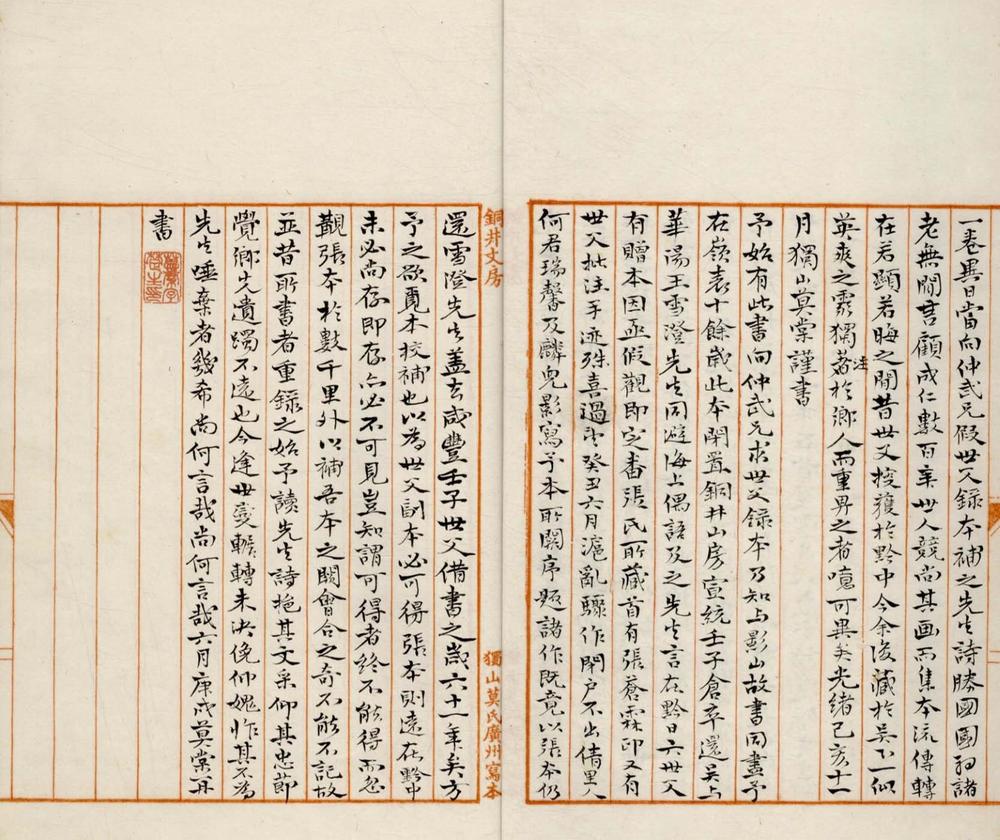 一卷異日當向仲武兄假世父錄本補之先生詩勝國國初諸
老無間言顧成仁數百年世人競尚其画而集本流傳轉
在若顯若晦之間昔世父搜獲於黔中今余復藏於吳下似
英爽之靈獨注於鄉人而重畀之者噫可異矣光緒己亥十一
月獨山莫棠謹書
予始有此書向仲武兄求世父錄本乃知與影山故書同盡予
在嶺表十餘歲此本閉置銅井山房宣統壬子倉卒還吳與
華陽王雪澄先生同避海上偶語及之先生言在黔日六世父
有贈本因亟假觀即安番張氏所藏首有張蒼霖印又有
世父批注手迹殊喜過望癸丑六月滬亂驟作閉戶不出倩里人
何君瑞馨及麟兒影寫予本所闕序題諸作既竟以張本仍
還雪澄先生蓋去咸豐壬子世父借書之歲六十一年矣方
予之欲覓本校補也以為世父副本必可得張本則遠在黔中
未必尚存即存亦必不可見豈知謂可得者終不能得而忽
覩張本於數千里外以補吾本之闕會合之奇不能不記故
並昔所書者重錄之始予讀先生詩挹其文采仰其忠節
覺鄉先遺躅不遠也今逢世變輾轉未決俛仰媿怍其不為
先生唾棄者幾希尚何言哉尚何言哉六月庚戌莫棠再
書
銅井文房
獨山莫氏廣州寫本